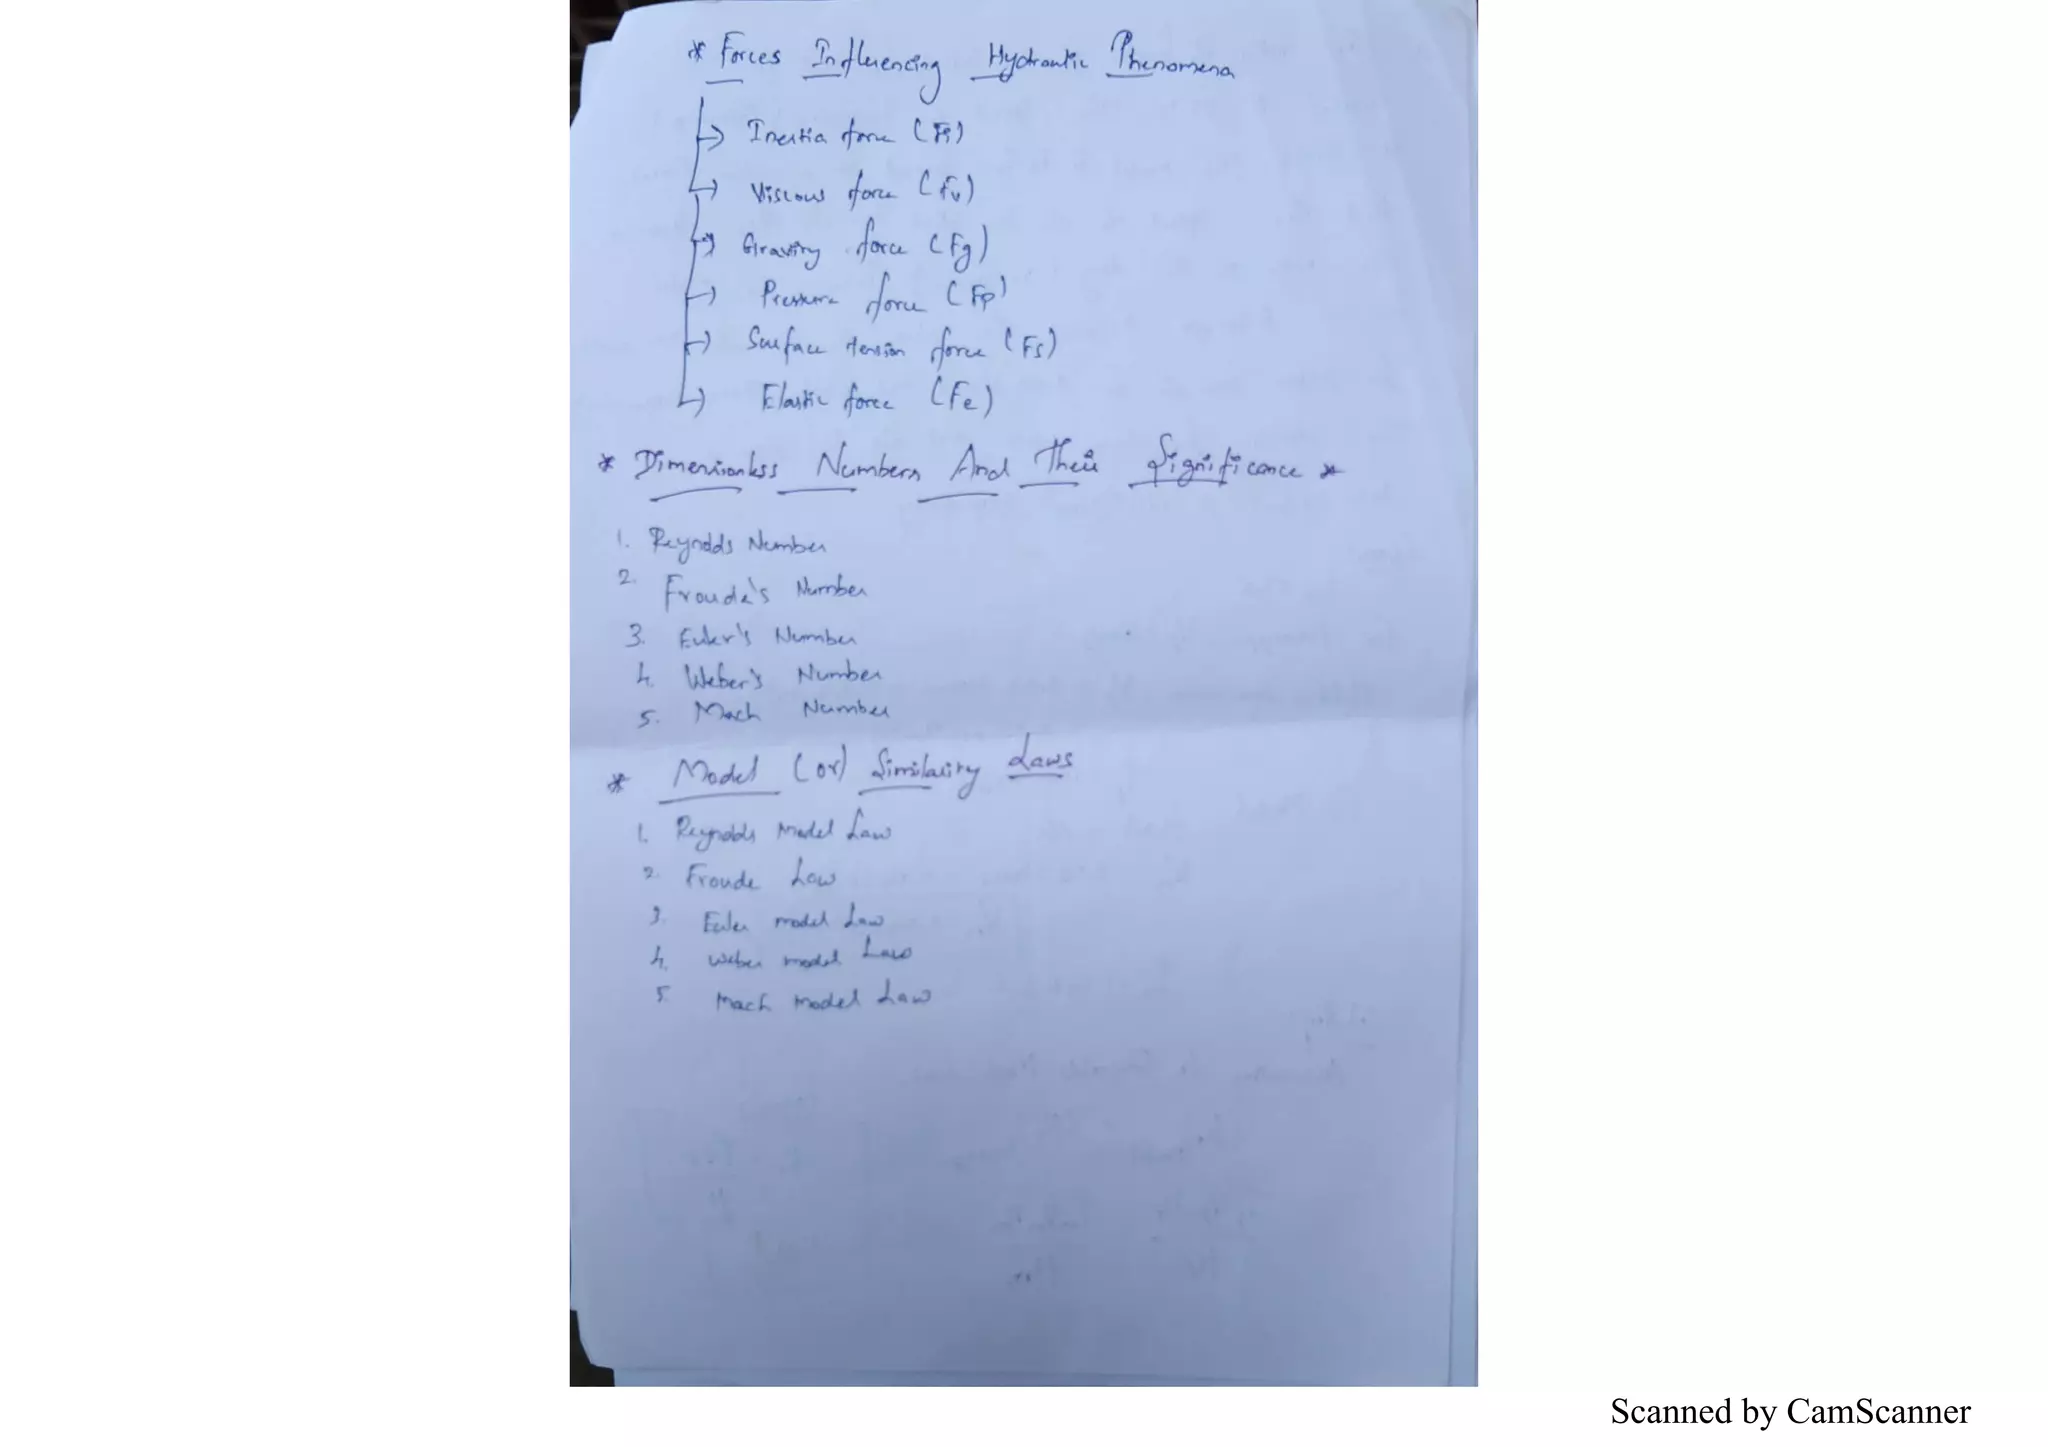 * Forces Influencing Hydraulic Phenomena
→ Inertia force (Fi)
→ Viscous force (Fv)
→ Gravity force (Fg)
→ Pressure force (Fp)
→ Surface tension force (Fs)
→ Elastic force (Fe)
* Dimensionless Numbers And Their Significance *
1. Reynolds Number
2. Froude's Number
3. Euler's Number
4. Weber's Number
5. Mach Number
* Model (or) Similarity Laws
1. Reynolds Model Law
2. Froude Law
3. Euler model Law
4. Weber model Law
5. Mach Model Law
Scanned by CamScanner